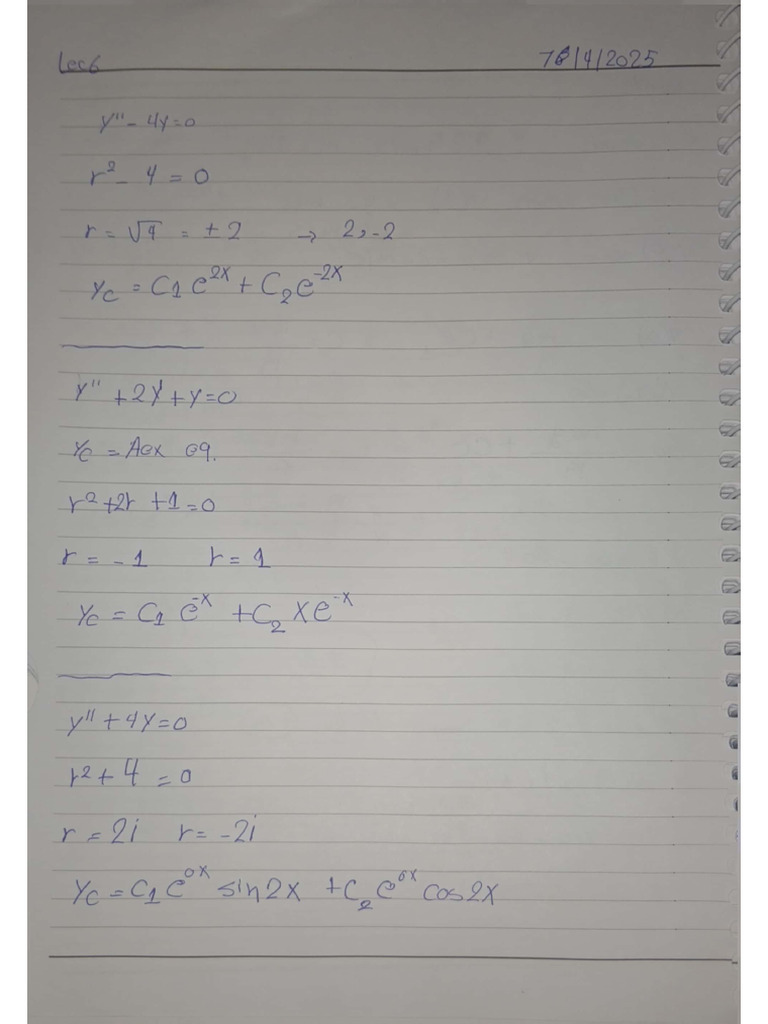 Lec6
16/4/2025
y'' - 4y = 0
r² - 4 = 0
r = √4 = ± 2 → 2, -2
yc = C1 e^2x + C2 e^-2x
y'' + 2y' + y = 0
yc = Aex eq.
r² + 2r + 1 = 0
r = -1 r = 1
yc = C1 e^-x + C2 x e^-x
y'' + 4y = 0
r² + 4 = 0
r = 2i r = -2i
yc = C1 e^0x sin2x + C2 e^0x cos2x